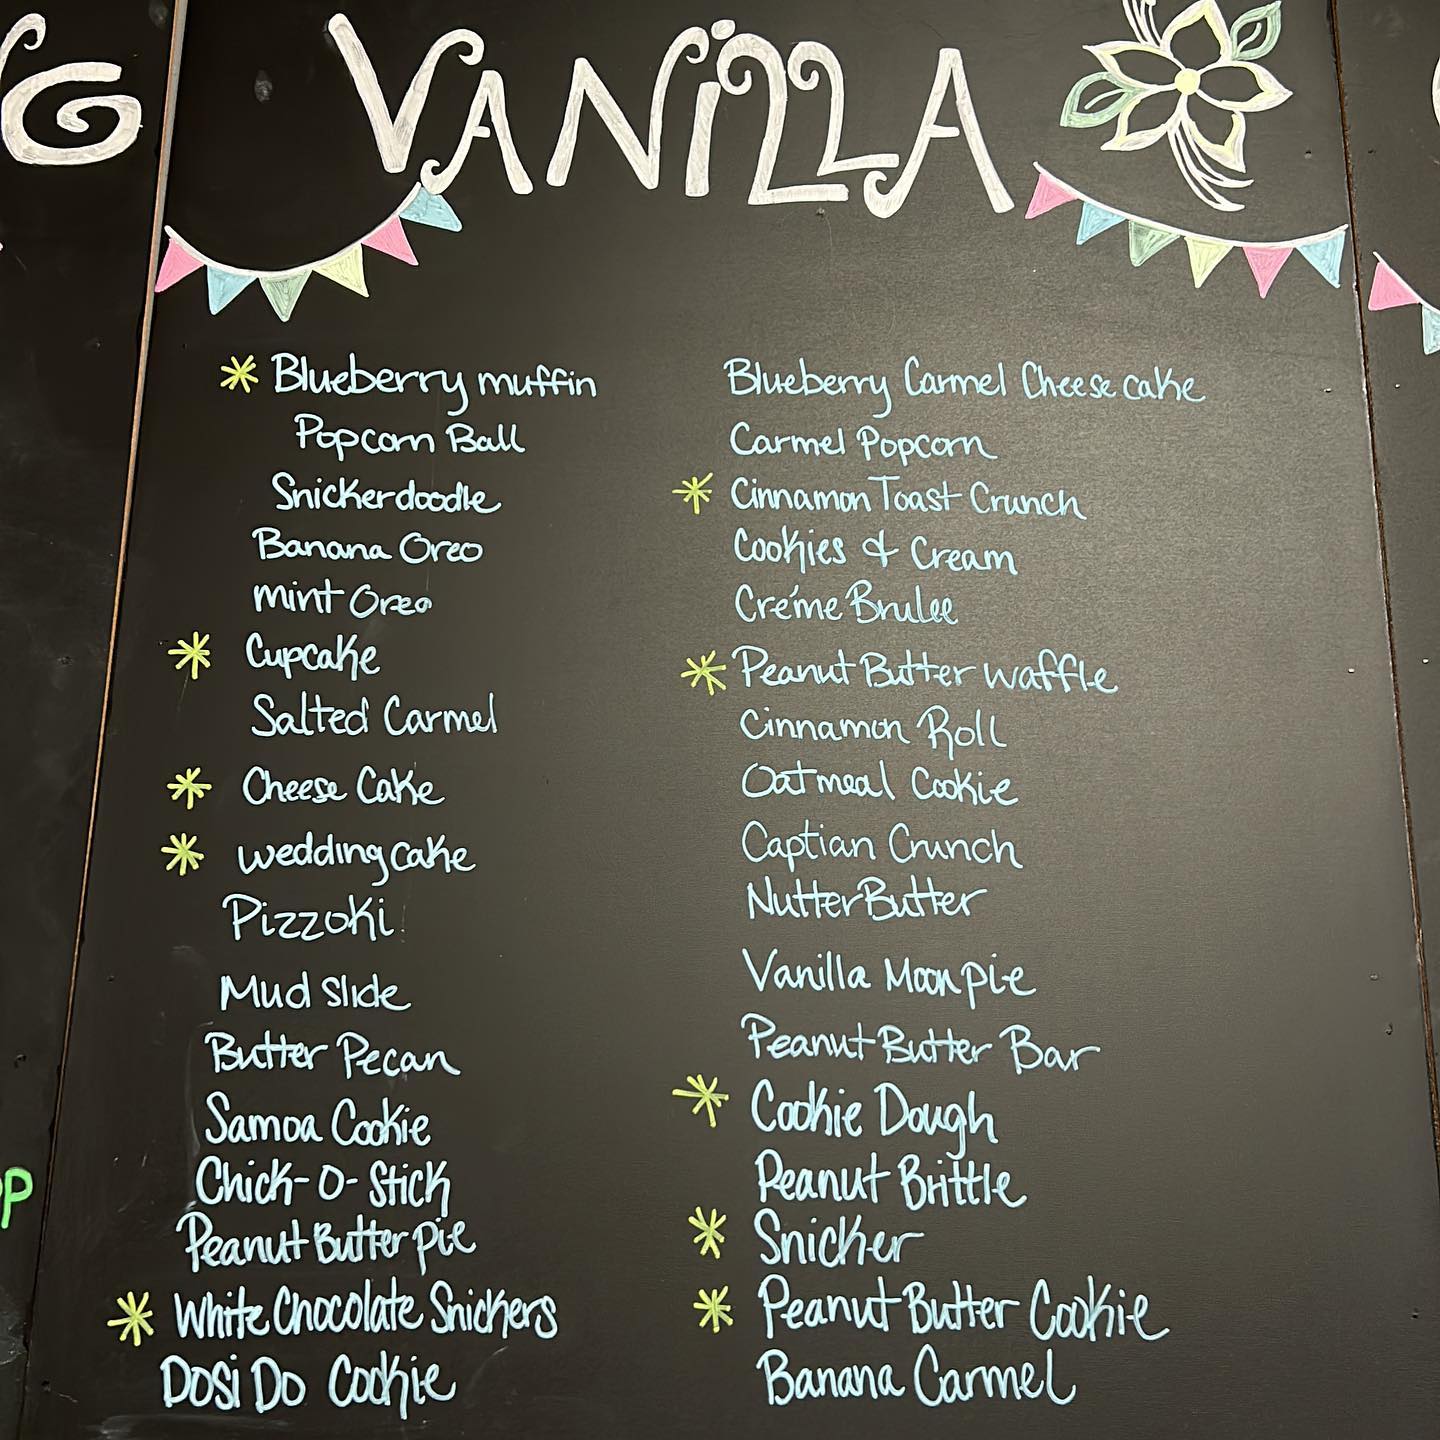 G
VANiLLA
* Blueberry muffin
Popcorn Ball
Snickerdoodle
Banana Oreo
mint Oreo
* Cupcake
Salted Carmel
* Cheese Cake
* wedding cake
Pizzoki
Mud Slide
Butter Pecan
Samoa Cookie
Chick-O-Stick
Peanut Butter pie
* White Chocolate Snickers
DoSi Do Cookie
Blueberry Carmel Cheese cake
Carmel Popcorn
* Cinnamon Toast Crunch
Cookies & Cream
Créme Brulee
* Peanut Butter waffle
Cinnamon Roll
Oatmeal Cookie
Captian Crunch
Nutter Butter
Vanilla Moonpie
Peanut Butter Bar
* Cookie Dough
Peanut Brittle
* Snicker
* Peanut Butter Cookie
Banana Carmel